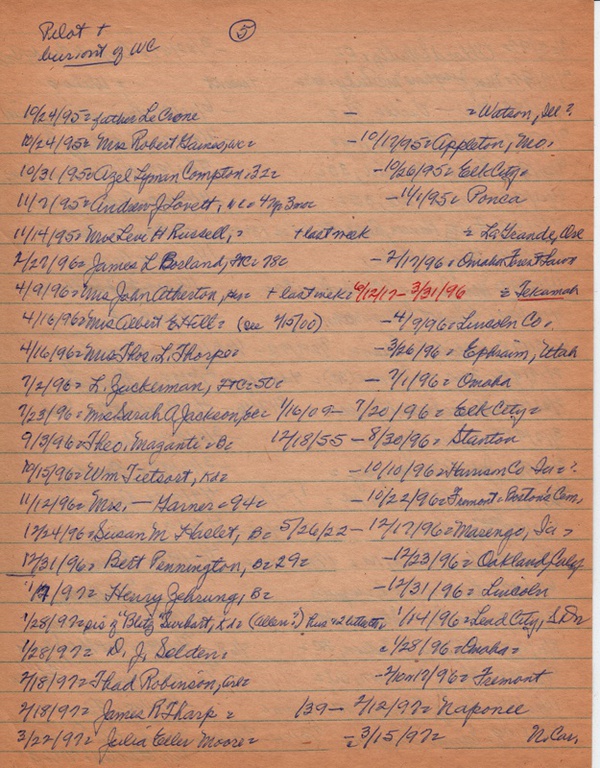 Pilot +
burisont of WC
5
10/24/95 = father LeCrone - = Watson, Ill ?
10/24/95 = Mrs Robert Gaines, wc = - 10/17/95 = Appleton, Mo.
10/31/95 = Azel Lyman Compton, 32 = - 10/26/95 = Elk City =
11/7/95 = Andrew J Lovett, = 4 yr 3 mo = - 11/1/95 = Ponca
11/14/95 = Mrs Levi H Russell, = + last week = La Grande, Ore
2/27/96 = James L Borland, = 78 = - 2/17/96 = Omaha Forest Lawn
4/9/96 = Mrs John Atherton, + last week = 6/12/17 - 3/31/96 = Tekamah
4/16/96 = Mrs Albert E Hill = (see 4/15/00) - 4/9/96 = Lincoln Co.
4/16/96 = Mrs Thos. L. Thorpe = - 3/26/96 = Ephraim, Utah
7/2/96 = L. Zuckerman, = 50 = - 7/1/96 = Omaha
7/23/96 = Mrs Sarah A Jackson, 1/16/09 - 7/20/96 = Elk City =
9/3/96 = Theo. Maganti = B = 12/18/55 - 8/30/96 = Stanton
10/15/96 = Wm Tietsort, Kd = - 10/10/96 = Harrison Co Ia = ?
11/12/96 = Mrs. — Garner = 94 = - 10/22/96 = Fremont = Barton's Cem.
12/24/96 = Susan M Haslet, B = 5/26/22 - 12/17/96 = Marengo, Ia =
12/31/96 = Bert Pennington, B = 29 = - 12/23/96 = Oakland, Calif
1/7/97 = Henry Gehrung, B = - 12/31/96 = Lincoln
1/28/97 = sis of "Blitz" Surbatt, Kd = (Allen?) 1/14/96 = Lead City, S.Dn
1/28/97 = D. J. Selden = = 1/28/96 = Omaha =
2/18/97 = Thad Robinson, - 2/10 or 17/96 = Fremont
2/18/97 = James R Tharp = 1/39 - 2/12/97 = Naponee
3/22/97 = Julia Eller Moore = - = 3/15/97 = N. Car.